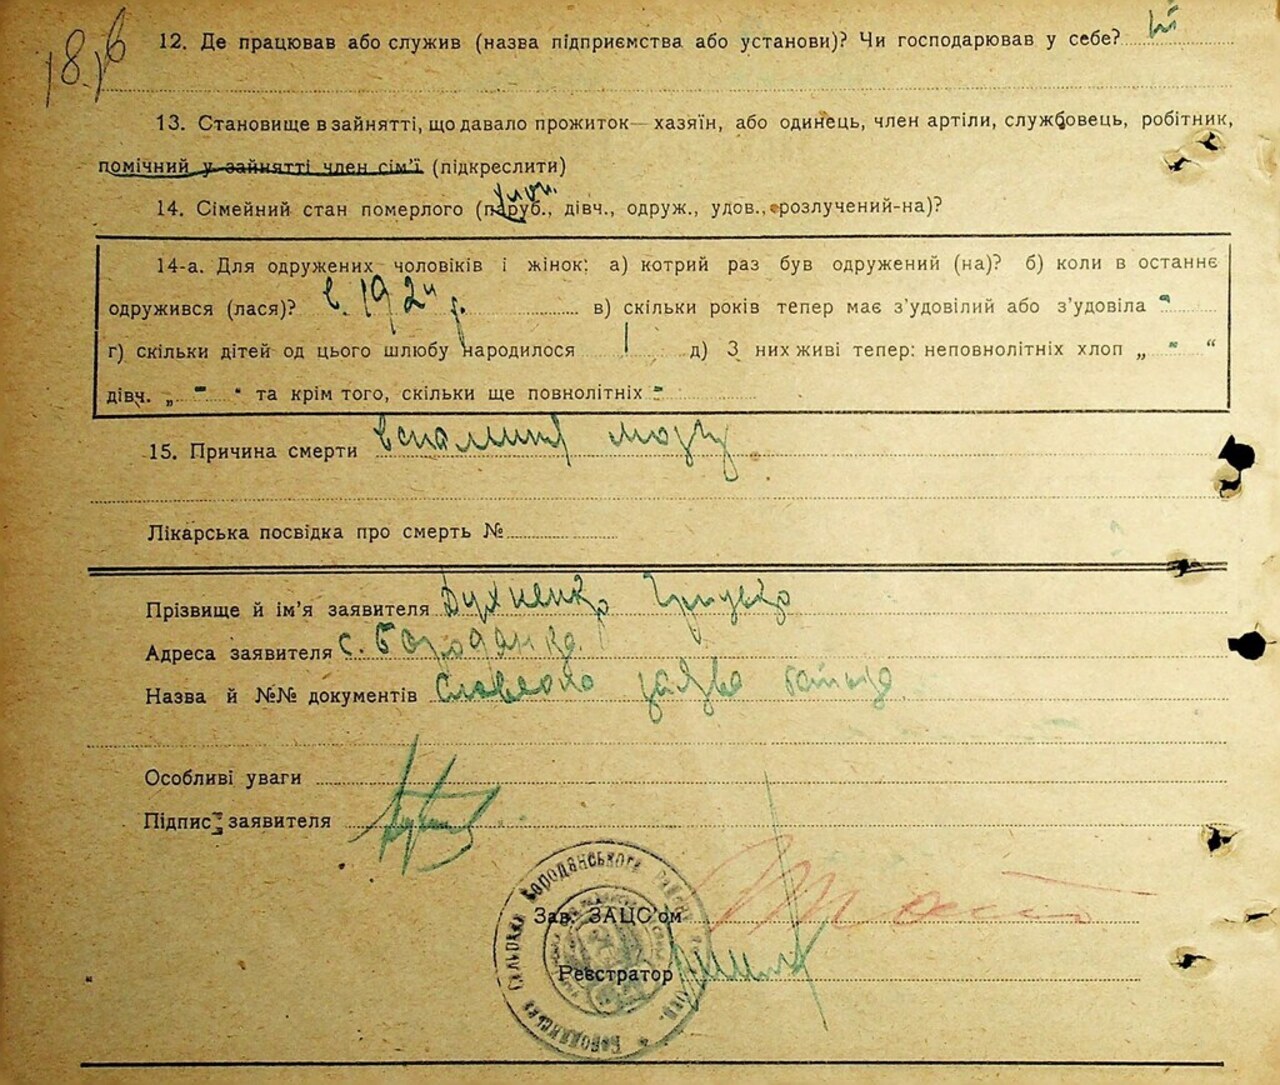 18/б
12. Де працював або служив (назва підприємства або установи)? Чи господарював у себе?
13. Становище в зайнятті, що давало прожиток — хазяїн, або одинець, член артіли, службовець, робітник,
помічний у зайнятті член сім'ї (підкреслити)
14. Сімейний стан померлого (паруб., дівч., одруж., удов., розлучений-на)?
14-а. Для одружених чоловіків і жінок: а) котрий раз був одружений (на)? б) коли в останнє
одружився (лася)? в 1924 г. в) скільки років тепер має з'удовілий або з'удовіла "
г) скільки дітей од цього шлюбу народилося 1 д) З них живі тепер: неповнолітніх хлоп „ - “
дівч. „ - “ та крім того, скільки ще повнолітніх -
15. Причина смерти воспаления мозгу
Лікарська посвідка про смерть №
Прізвище й ім'я заявителя Духненко Грицько
Адреса заявителя с. Бородянка
Назва й №№ документів Словесна заява батька
Особливі уваги
Підпис заявителя
Зав. ЗАЦС'ом
Реєстратор
Бородянська сільрада Бородянського району